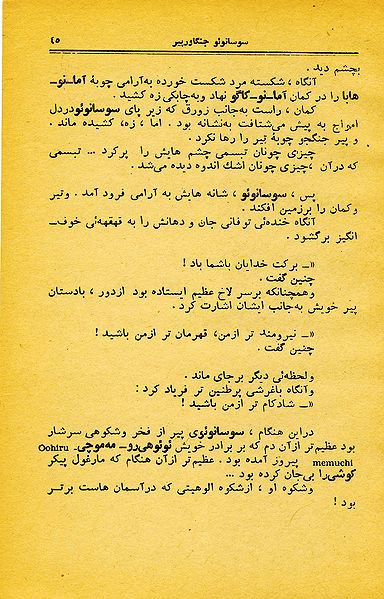 سوسانوئو جنگاورپیر ۴۵
بچشم دید .
آنگاه ، شکسته مرد شکست خورده به‌آرامی چوبهٔ آما_نو_
هابا را در کمان آما_نو_کاگو نهاد وبه‌چابکی زه کشید .
کمان ، راست به‌جانب زورق که زیر پای سوسانوئودردل
امواج به پیش می‌شتافت به‌نشانه بود . اما ، زه، کشیده ماند .
و پیر جنگجو چوبهٔ تیر را رها نکرد .
چیزی چونان تبسمی چشم هایش را پرکرد ... تبسمی
که درآن ،چیزی چونان اشك اندوه دیده می‌شد .
پس ، سوسانوئو ، شانه هایش به آرامی فرود آمد . وتیر
وکمان را برزمین افکند .
آنگاه خنده‌ئی توفانی جان و دهانش را به قهقهه‌ئی خوف_
انگیز برگشود .
«_ برکت خدایان باشما باد !
چنین گفت .
وهمچنانکه برسر لاخ عظیم ایستاده بود ازدور ، بادستان
پیر خویش به‌جانب ایشان اشارت کرد .
«_ نیرومند تر ازمن، قهرمان تر ازمن باشید !
چنین گفت .
ولحظه‌ئی دیگر برجای ماند .
وآنگاه باغرشی پرطنین تر فریاد کرد :
«_ شادکام تر ازمن باشید !
دراین هنگام ، سوسانوئوی پیر از فخر وشکوهی سرشار
بود عظیم‌تر ازآن دم که بر برادر خویش ئوئوهی‌رو_ مه‌موچی_ Oohiru
memuchi پیروز آمده بود . عظیم‌تر ازآن هنگام که مارغول پیکر
گوشی‌را بی‌جان کرده بود ...
وشکوه او ، ازشکوه الوهیتی که درآسمان هاست برتـر
بود !